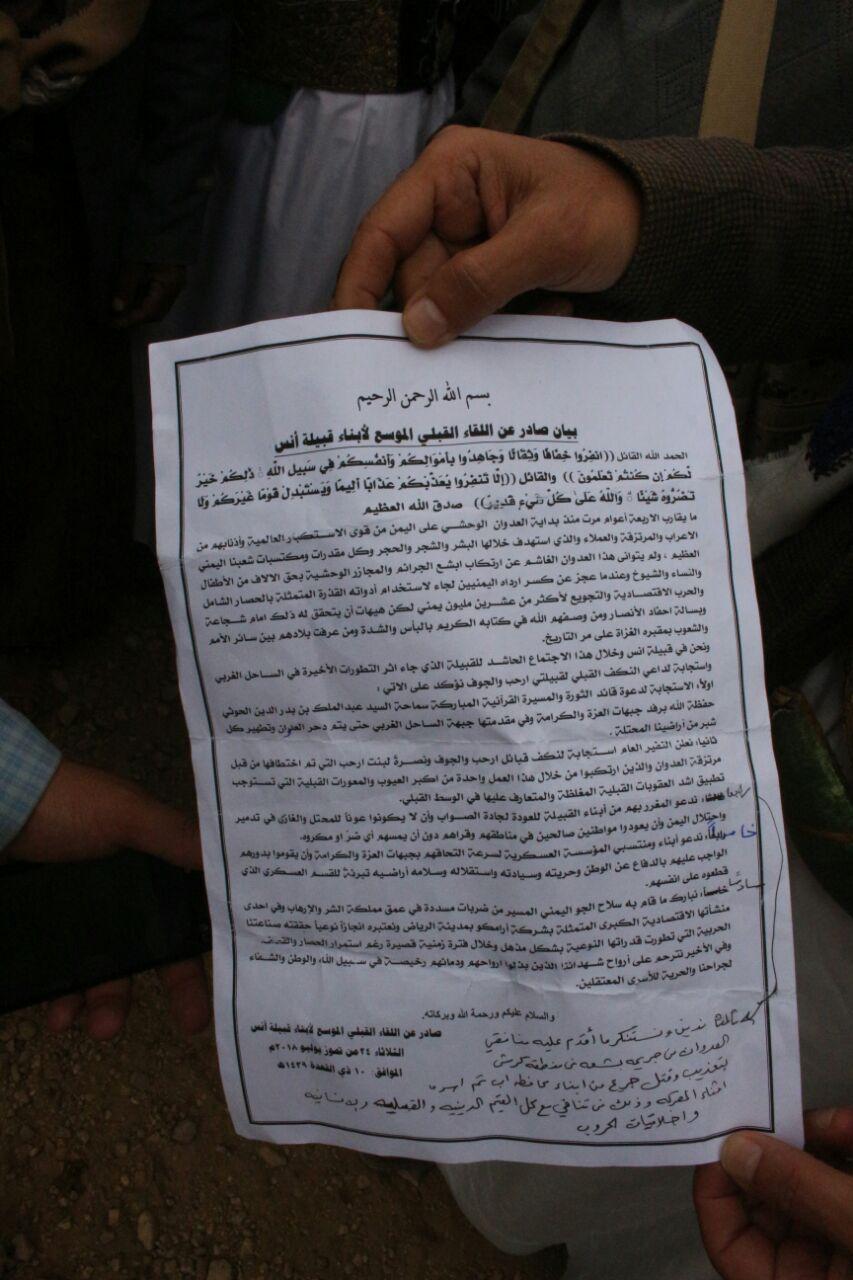 بسم الله الرحمن الرحيم
بيان صادر عن اللقاء القبلي الموسع لأبناء قبيلة أنس
الحمد الله القائل ((انْفِرُوا خِفَافًا وَثِقَالًا وَجَاهِدُوا بِأَمْوَالِكُمْ وَأَنْفُسِكُمْ فِي سَبِيلِ اللَّهِ ۚ ذَلِكُمْ خَيْرٌ
لَكُمْ إِن كُنْتُمْ تَعْلَمُونَ)) والقائل ((إِلَّا تَنفِرُوا يُعَذِّبْكُمْ عَذَابًا أَلِيمًا وَيَسْتَبْدِلْ قَوْمًا غَيْرَكُمْ وَلَا
تَضُرُّوهُ شَيْئًا ۗ وَاللَّهُ عَلَىٰ كُلِّ شَيْءٍ قَدِيرٌ)) صدق الله العظيم
ما يقارب الاربعة أعوام مرت منذ بداية العدوان الوحشي على اليمن من قوى الاستكبار العالمية وأذنابهم من
الاعراب والمرتزقة والعملاء والذي استهدف خلالها البشر والشجر والحجر وكل مقدرات ومكتسبات شعبنا اليمني
العظيم ، ولم يتوانى هذا العدوان الغاشم عن ارتكاب ابشع الجرائم والمجازر الوحشية بحق الالاف من الأطفال
والنساء والشيوخ وعندما عجز عن كسر ارداه اليمنيين لجاء لاستخدام أدواته القذرة المتمثلة بالحصار الشامل
والحرب الاقتصادية والتجويع لأكثر من عشرين مليون يمني لكن هيهات أن يتحقق له ذلك امام شجاعة
وبسالة احفاد الأنصار ومن وصفهم الله في كتابه الكريم بالبأس والشدة ومن عرفت بلادهم بين سائر الأمم
والشعوب بمقبره الغزاة على مر التاريخ.
ونحن في قبيلة انس وخلال هذا الاجتماع الحاشد للقبيلة الذي جاء اثر التطورات الأخيرة في الساحل الغربي
واستجابة لداعي النكف القبلي لقبيلتي ارحب والجوف نؤكد على الاتي :
اولاً: الاستجابة لدعوة قائد الثورة والمسيرة القرآنية المباركة سماحة السيد عبدالملك بن بدر الدين الحوثي
حفظة الله برفد جبهات العزة والكرامة وفي مقدمتها جبهة الساحل الغربي حتى يتم دحر العدوان وتطهير كل
شبر من أراضينا المحتلة .
ثانيا: نعلن النفير العام استجابة لنكف قبائل ارحب والجوف ونصرةً لبنت ارحب التي تم اختطافها من قبل
مرتزقة العدوان والذين ارتكبوا من خلال هذا العمل واحدة من اكبر العيوب والمعورات القبلية التي تستوجب
تطبيق اشد العقوبات القبلية المغلظة والمتعارف عليها في الوسط القبلي.
رابعا ندعو المغرر بهم من أبناء القبيلة للعودة لجادة الصواب وأن لا يكونوا عوناً للمحتل والغازي في تدمير
واحتلال اليمن وأن يعودوا مواطنين صالحين في مناطقهم وقراهم دون أن يمسهم أي ضر او مكروه.
خامساً رابعاً: ندعو أبناء ومنتسبي المؤسسة العسكرية لسرعة التحاقهم بجبهات العزة والكرامة وأن يقوموا بدورهم
الواجب عليهم بالدفاع عن الوطن وحريته وسيادته واستقلاله وسلامه أراضيه تبرئة للقسم العسكري الذي
قطعوه على انفسهم.
سادسًا خامساً: نبارك ما قام به سلاح الجو اليمني المسير من ضربات مسددة في عمق مملكة الشر والإرهاب وفي احدى
منشأتها الاقتصادية الكبرى المتمثلة بشركة أرامكو بمدينة الرياض ونعتبره انجازاً نوعياً حققته صناعتنا
الحربية التي تطورت قدراتها النوعية بشكل مذهل وخلال فترة زمنية قصيرة رغم استمرار الحصار والقصف.
وفي الأخير نترحم على أرواح شهدائنا الذين بذلوا ارواحهم ودمائهم رخيصة في سبيل الله والوطن والشفاء
لجراحنا والحرية للأسرى المعتقلين.
والسلام عليكم ورحمة الله وبركاته.
صادر عن اللقاء القبلي الموسع لأبناء قبيلة أنس
الثلاثاء ٢٤ من تموز يوليو ٢٠١٨م
الموافق: ١٠ ذي القعدة ١٤٣٩هـ
ثالثا ندين ونستنكر ما أقدم عليه منافقي
العدوان من جريمه بشعه في منطقة كرش
بتعذيب وقتل جريح من ابناء محافظه اب تم اسره
اثناء المعركه وذلك تنافي مع كل القيم الدينيه والقبليه والانسانيه
واخلاقيات الحروب